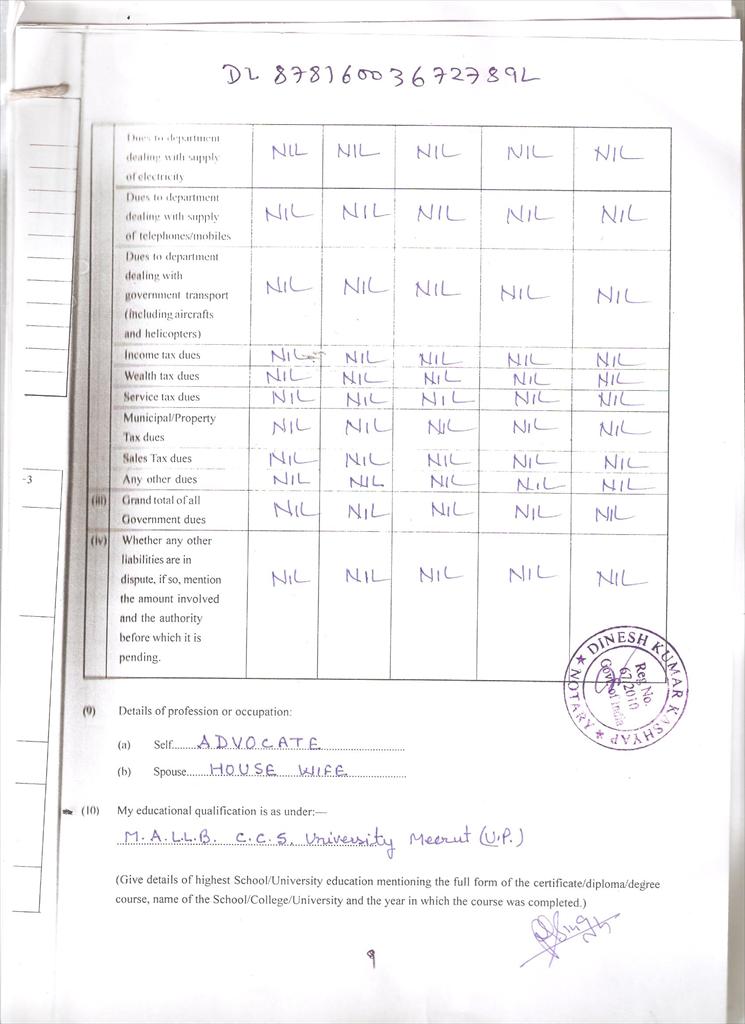 DL 87816003672789L
Dues to department
dealing with supply
of electricity
NIL NIL NIL NIL NIL
Dues to department
dealing with supply
of telephones/mobiles
NIL NIL NIL NIL NIL
Dues to department
dealing with
government transport
(including aircrafts
and helicopters)
NIL NIL NIL NIL NIL
Income tax dues NIL NIL NIL NIL NIL
Wealth tax dues NIL NIL NIL NIL NIL
Service tax dues NIL NIL NIL NIL NIL
Municipal/Property
Tax dues
NIL NIL NIL NIL NIL
Sales Tax dues NIL NIL NIL NIL NIL
Any other dues NIL NIL NIL NIL NIL
(iii) Grand total of all
Government dues
NIL NIL NIL NIL NIL
(iv) Whether any other
liabilities are in
dispute, if so, mention
the amount involved
and the authority
before which it is
pending.
NIL NIL NIL NIL NIL
-3
DINESH KUMAR KASHYAP
★ NOTARY ★
Reg No.
67/2010
Govt. of India
(9) Details of profession or occupation:
(a) Self......ADVOCATE......
(b) Spouse......HOUSE WIFE......
(10) My educational qualification is as under:—
M.A.LL.B. C.C.S. University Meerut (U.P.)
(Give details of highest School/University education mentioning the full form of the certificate/diploma/degree
course, name of the School/College/University and the year in which the course was completed.)
9